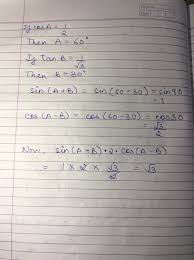 If cosA = 1/2
Then A = 60°
If tan B = 1/√3
Then B = 30°
sin (A+B) = sin (60-30) = sin 90
= 1
cos (A-B) = cos (60-30) = cos 30
= √3/2
Now, sin (A+B) + 2 × cos (A-B)
= 1 × 2 × √3/2 = √3